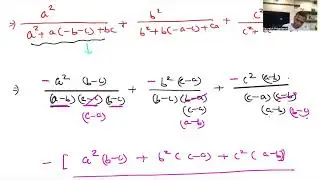 ⇒ a² / (a² + a(-b-c) + bc) + b² / (b² + b(-a-c) + ca) + c² / (c² +
⇒ -a² (b-c) / ((a-b) (a-c) (b-c)) + -b² (c-a) / ((b-c) (b-a) (c-a)) + -c² (a-b) / ((c-a) (c-b)
(c-a) (a-b) (a-b) (b-c)
- [ a² (b-c) + b² (c-a) + c² (a-b)]